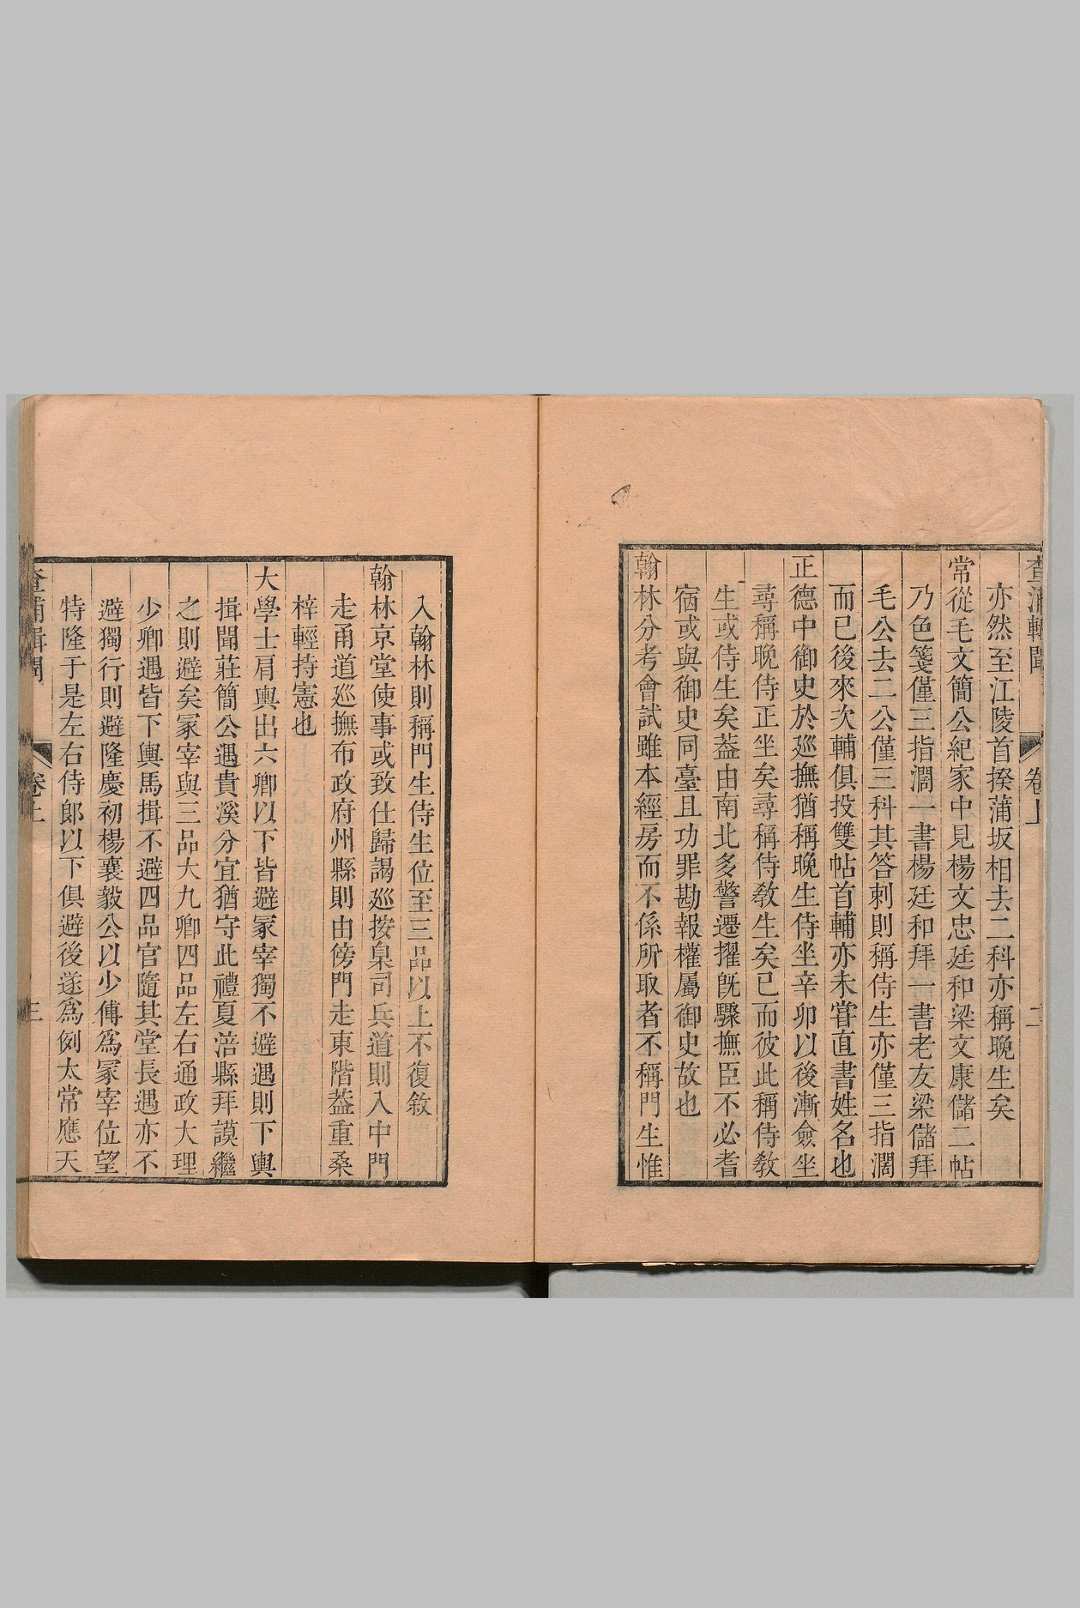 查浦輯聞 卷上 二
亦然至江陵首揆蒲坂相去二科亦稱晚生矣
常從毛文簡公紀家中見楊文忠廷和梁文康儲二帖
乃色箋僅三指濶一書楊廷和拜一書老友梁儲拜
毛公去二公僅三科其答刺則稱侍生亦僅三指濶
而已後來次輔俱投雙帖首輔亦未甞直書姓名也
正德中御史於廵撫猶稱晚生侍坐辛卯以後漸僉坐
尋稱晚侍正坐矣尋稱侍教生矣已而彼此稱侍教
生或侍生矣葢由南北多警遷擢旣驟撫臣不必耆
宿或與御史同臺且功罪勘報權屬御史故也
翰林分考會試雖本經房而不係所取者不稱門生惟
入翰林則稱門生侍生位至三品以上不復敘
翰林京堂使事或致仕歸謁廵按臬司兵道則入中門
走甬道廵撫布政府州縣則由傍門走東階葢重桑
梓輕持憲也
大學士肩輿出六卿以下皆避冢宰獨不避遇則下輿
揖聞莊簡公遇貴溪分宜猶守此禮夏涪縣拜謨繼
之則避矣冢宰與三品大九卿四品左右通政大理
少卿遇皆下輿馬揖不避四品官隨其堂長遇亦不
避獨行則避隆慶初楊襄毅公以少傅爲冢宰位望
特隆于是左右侍郞以下俱避後遂爲例太常應天
查浦輯聞 卷上 三